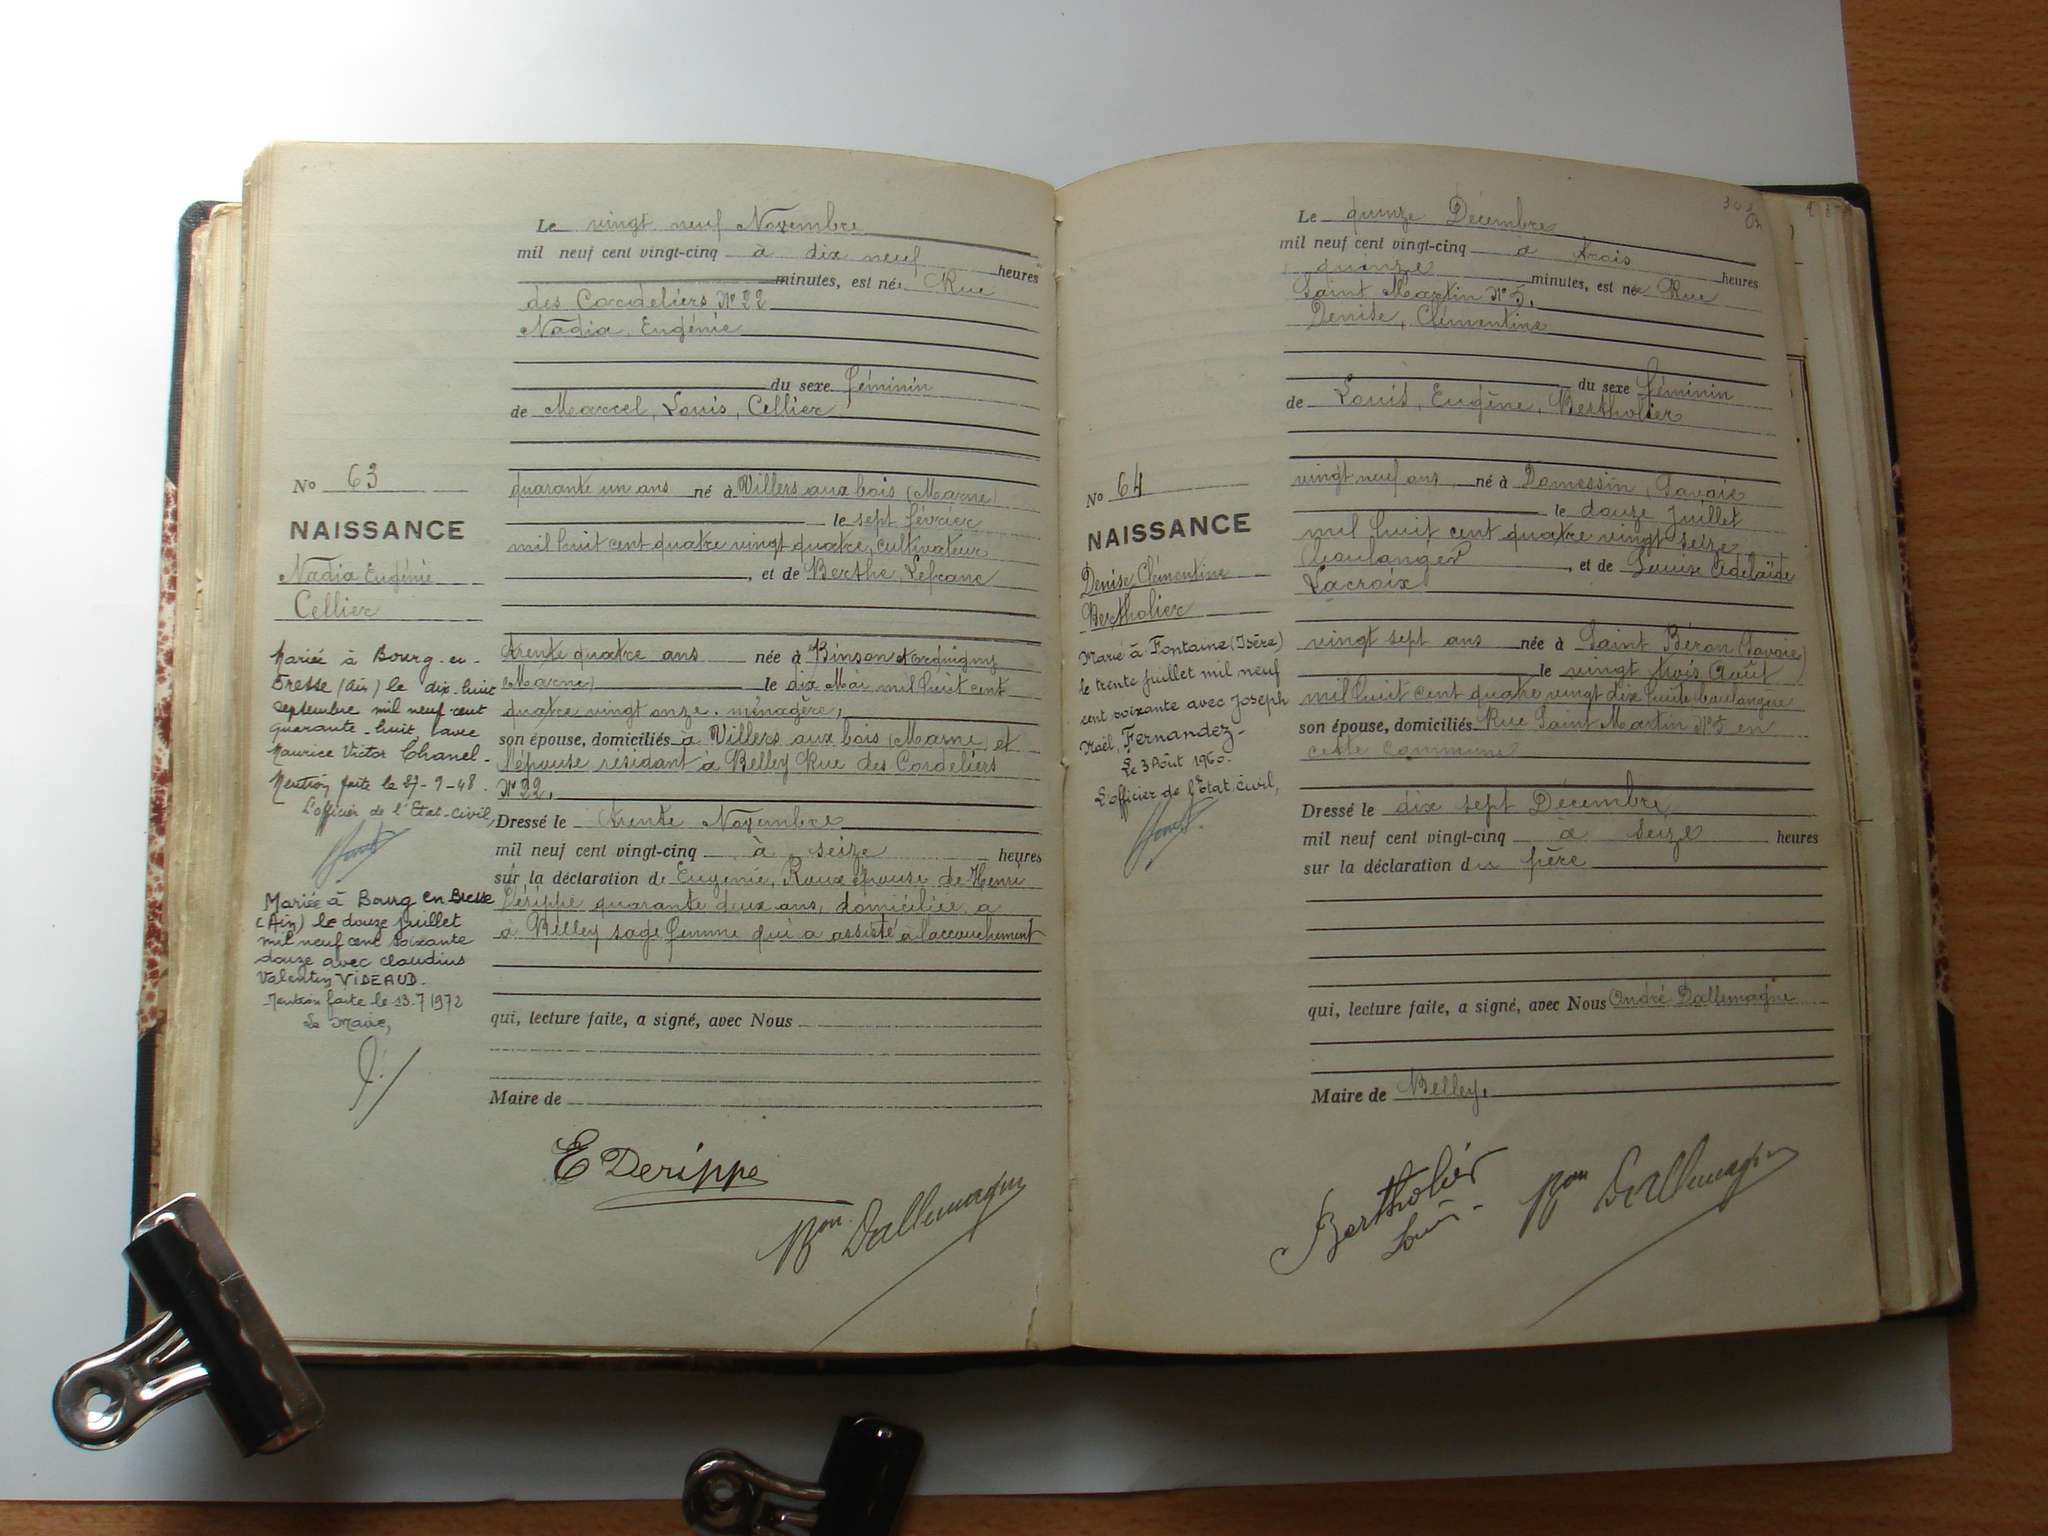 Le vingt neuf Novembre
mil neuf cent vingt-cinq à dix neuf heures
minutes, est née Rue
des Cordeliers Nº 22
Nadia, Eugénie
du sexe féminin
de Marcel, Louis, Cellier
quarante un ans né à Villers aux bois (Marne)
le sept février
mil huit cent quatre vingt quatre, cultivateur
, et de Berthe, Lefranc
trente quatre ans née à Binson
Marne) le dix Mai mil huit cent
quatre vingt onze, ménagère,
son épouse, domiciliés à Villers aux bois (Marne) et
l'épouse résidant à Belley Rue des Cordeliers
Nº 22,
Dressé le trente Novembre
mil neuf cent vingt-cinq à seize heures
sur la déclaration de Eugénie, Roux épouse de Henri
Dérippe quarante deux ans, domiciliée a
à Belley sage femme qui a assisté à l'accouchement
qui, lecture faite, a signé, avec Nous
Maire de
E Derippe
Bon Dallemagne
No 63
NAISSANCE
Nadia Eugénie
Cellier
Mariée à Bourg-en-
Bresse (Ain) le dix-huit
septembre mil neuf cent
quarante-huit avec
Maurice Victor Chanel-
Mention faite le 27-9-48.
L'officier de l'Etat-Civil,
Mariée à Bourg en Bresse
(Ain) le douze juillet
mil neuf cent soixante
douze avec claudius
Valentin VIDEAUD.
Mention faite le 13.7 1972
Le Maire,
Le quinze Décembre
mil neuf cent vingt-cinq a trois heures
quinze minutes, est née Rue
Saint Martin Nº 5,
Denise, Clémentine
du sexe féminin
de Louis, Eugène, Bertholier
vingt neuf ans né à Domessin (Savoie
le douze juillet
mil huit cent quatre vingt seize
boulanger, et de Louise Adélaïde
Lacroix
vingt sept ans née à Saint Béron (Savoie)
le vingt trois Août
mil huit cent quatre vingt dix huit boulangère
son épouse, domiciliés Rue Saint Martin Nº 5 en
cette Commune
Dressé le dix sept Décembre
mil neuf cent vingt-cinq à seize heures
sur la déclaration du père
qui, lecture faite, a signé, avec Nous André Dallemagne
Maire de Belley.
Bertholier
Louis
Bon Dallemagne
No 64
NAISSANCE
Denise Clémentine
Bertholier
Marié à Fontaine (Isère)
le trente juillet mil neuf
cent soixante avec Joseph
Noël, Fernandez-
Le 3 Août 1960.
L'officier de l'Etat civil,